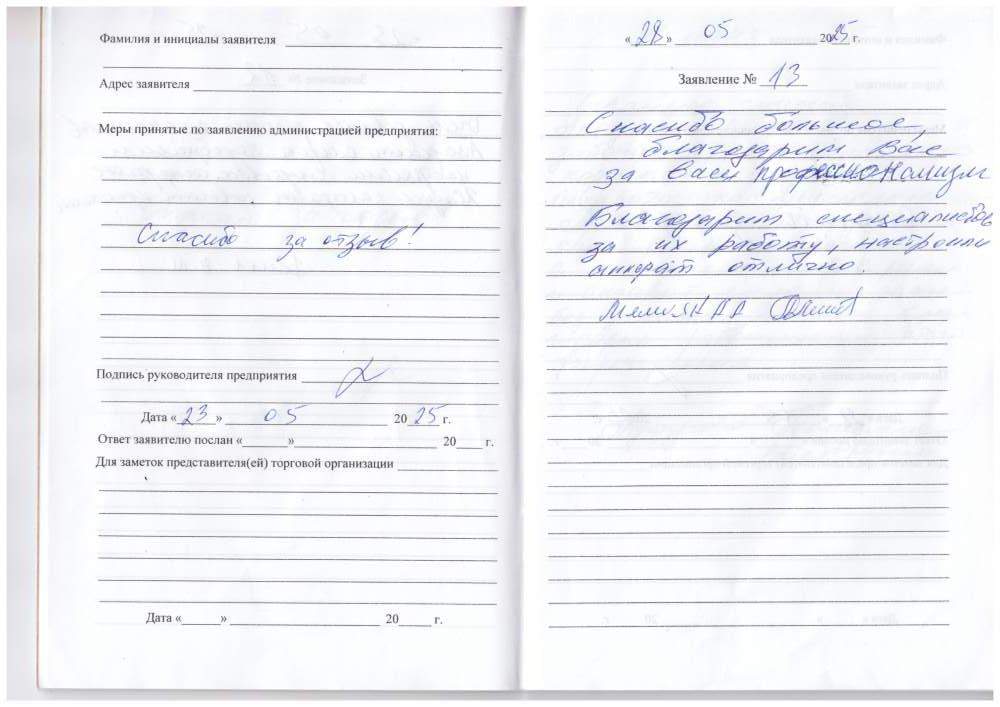 Фамилия и инициалы заявителя
Адрес заявителя
Меры принятые по заявлению администрацией предприятия:
Спасибо за отзыв!
Подпись руководителя предприятия
Дата «23» 05 2025 г.
Ответ заявителю послан «» 20 г.
Для заметок представителя(ей) торговой организации
Дата «» 20 г.
«28» 05 2025 г.
Заявление № 13
Спасибо большое,
благодарим Вас
за Ваш профессионализм
Благодарим специалистов
за их работу, настроили
аппарат отлично.